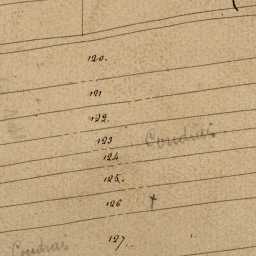 120.
121
122.
123
124
125.
126
127.